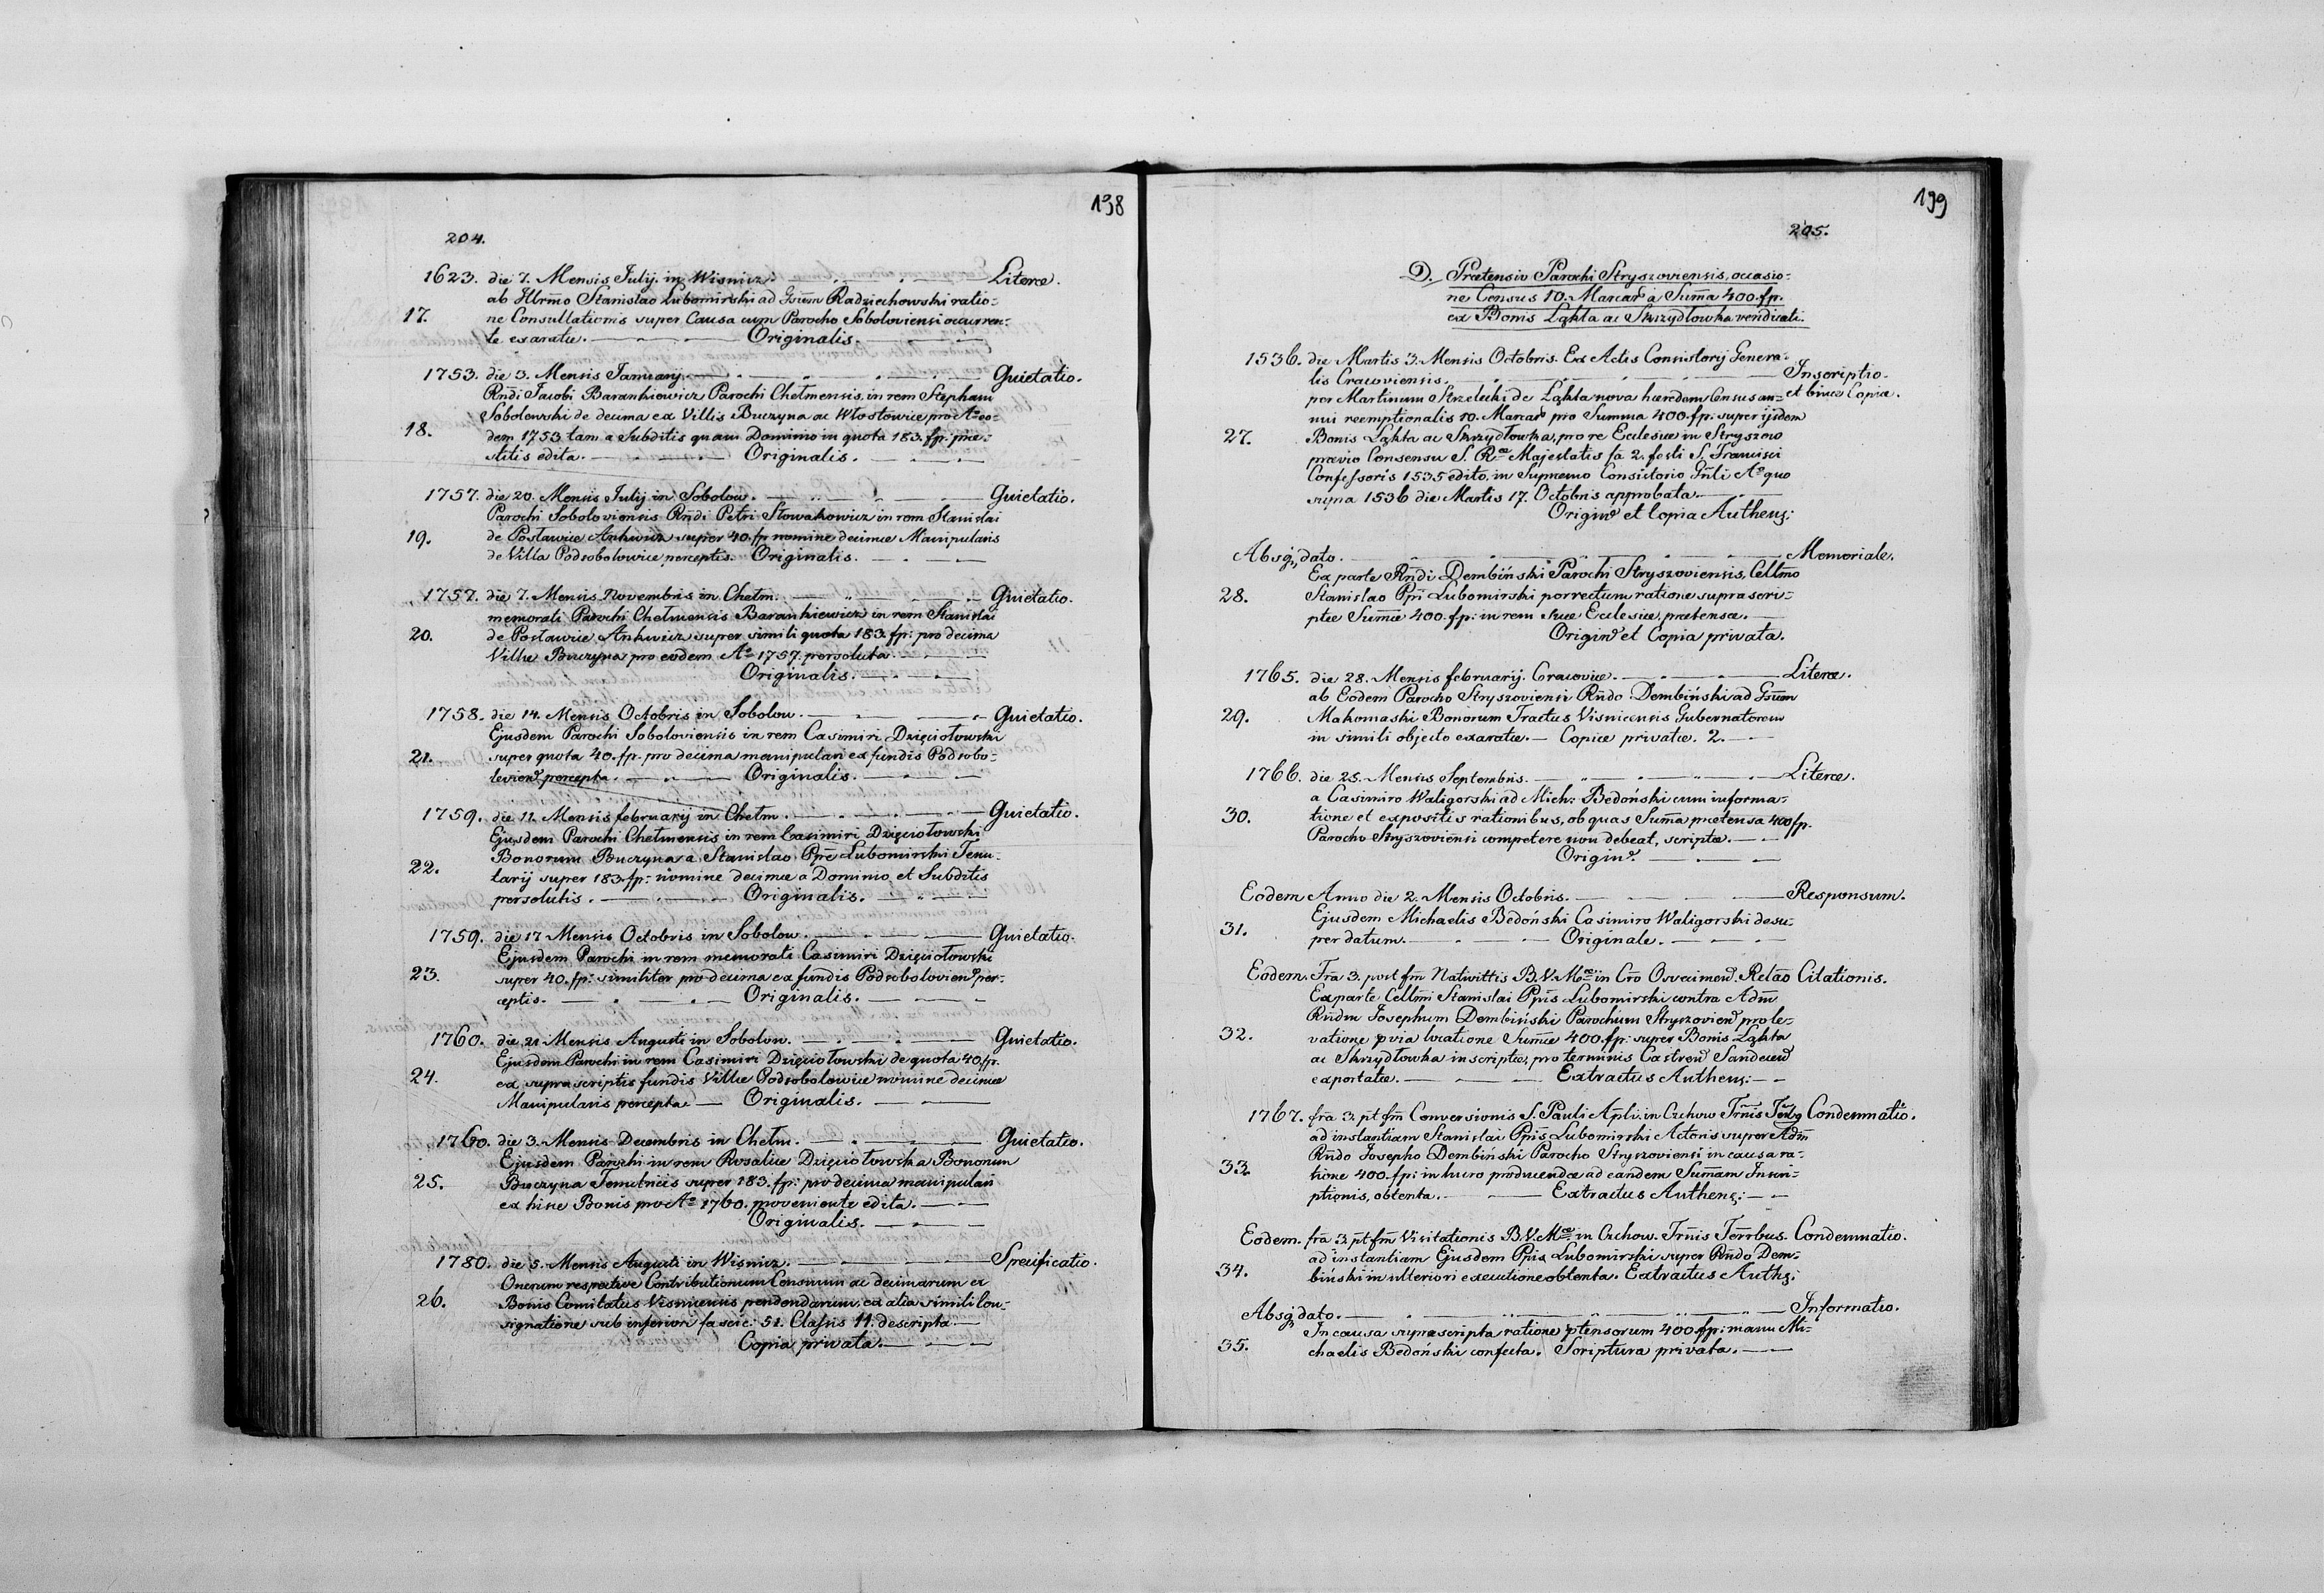 198
204.
1623. die 7. Mensis Julij. in Wisnicz. Literæ.
ab Illrm̃o Stanislao Lubomirski ad Gsum̃ Radziechowski ratio=
17. ne Consultationis super Causa cum Parocho Soboloviensi occurren=
te exaratæ. Originalis.
1753. die 3. Mensis Januarij. Quietatio.
Rñdi Jacobi Barankiewicz Parochi Chełmensis, in rem Stephani
Sobolewski de decima ex Villis Buczyna ac Włostowice pro Aº eo=
18. dem 1753 tam a Subditis quam Dominio in quota 183. fp. præ=
stitis edita. Originalis.
1757. die 20. Mensis Julij in Sobolow. Quietatio.
Parochi Soboloviensis Rñdi Petri Słowakowicz in rem Stanislai
19. de Posławice Ankwicz super 40. fp nomine decimæ Manipularis
de Villa Podsobolowice perceptis. Originalis.
1757. die 7. Mensis Novembris in Chełm. Quietatio.
memorati Parochi Chełmensis Barankiewicz in rem Stanislai
20. de Posławice Ankwicz super simili quota 183. fp: pro decima
Villæ Buczyna pro eodem Aº 1757. persoluta.
Originalis.
1758. die 14. Mensis Octobris in Sobolow. Quietatio.
Ejusdem Parochi Soboloviensis in rem Casimiri Dzięciołowski
21. super quota 40. fp. pro decima manipulari ex fundis Podsobo=
levien̄ percepta. Originalis.
1759. die 11. Mensis february in Chełm. Quietatio.
Ejusdem Parochi Chełmensis in rem Casimiri Dzięciołowski
Bonorum Buczyna a Stanislao Ppe Lubomirski Tenu=
22. tarij super 183. fp: nomine decimæ a Dominio et Subditis
persolutis. Originalis.
1759. die 17 Mensis Octobris in Sobolow. Quietatio.
Ejusdem Parochi in rem memorati Casimiri Dzięciołowski
23. super 40. fp: similiter pro decima ex fundis Podsobolovien̄ per=
ceptis. Originalis.
1760. die 21 Mensis Augusti in Sobolow. Quietatio.
Ejusdem Parochi in rem Casimiri Dzięciołowski de quota 40. fp.
24. ex supra scriptis fundis Villæ Podsobolowice nomine decimæ
Manipularis percepta. Originalis.
1760. die 3. Mensis Decembris in Chełm. Quietatio.
Ejusdem Parochi in rem Rosaliæ Dzięciołowska Bonorum
25. Buczyna Tenutricis super 183. fp: pro decima manipulari
ex hisce Bonis pro Aº 1760. proveniente edita.
Originalis.
1780. die 5. Mensis Augusti in Wisnicz. Specificatio.
Onerum respective Contributionum Censuum ac decimarum ex
26. Bonis Comitatus Visnicensis pendendarum, ex alia simili con=
signatione sub inferiori fascic: 51. Classis 11. descripta
Copia privata.
199
205.
D. Prætensio Parochi Stryszoviensis, occasio=
ne Census 10. Marcar̄ a Sum̃a 400. fp.
ex Bonis Łąkta ac Skrzydłowka vendicati.
1536. die Martis 3. Mensis Octobris. Ex Actis Consistorij Genera=
lis Cracoviensis. Inscriptio.
per Martinum Strzelecki de Łąkta nova hæredem Census an= et binæ Copiæ.
nui reemptionalis 10. Marcar̄ pro Summa 400. fp: super ijsdem
27. Bonis Łąkta ac Skrzydłowka, pro re Ecclesiæ in Stryszow
prævio Consensu S. Ræ Majestatis fa 2. festi S. Francisci
Confessoris 1535 edito, in Supremo Consistorio Gñli Aº quo
supra 1536 die Martis 17. Octobris approbata.
Origin̄ et Copia Authenz:
Absq, dato. Memoriale.
Ex parte Rñdi Dembiński Parochi Stryszoviensis, Cellm̃o
28. Stanislao Ppi Lubomirski porrectum ratione supra scri=
ptæ Sum̃æ 400. fp: in rem suæ Ecclesiæ prætensæ.
Origin̄ et Copia privata.
1765. die 28. Mensis februarij. Cracoviæ. Literæ.
ab Eodem Parocho Stryszoviensi Rñdo Dembiński ad Gsum̃
29. Makomaski Bonorum Tractus Visnicensis Gubernatorem
in simili objecto exaratæ. Copiæ privatæ. 2.
1766. die 25. Mensis Septembris. Literæ.
a Casimiro Waligorski ad Mich: Bedoński cum informa=
30. tione et expositis rationibus, ob quas Sum̃a prætensa 400 fp.
Parocho Stryszoviensi competere non debeat, scriptæ.
Origin̄.
Eodem Anno die 2. Mensis Octobris. Responsum.
Ejusdem Michaelis Bedoński Casimiro Waligorski desu=
31. per datum. Originale.
Eodem. Fra 3. post fm̃ Nativittis B. V. Mæ in Cro Osvecimen̄. Relao Citationis.
Ex parte Cellmi Stanislai Ppis Lubomirski contra Adm̃
Rñdm Josephum Dembiński Parochum Stryszovien̄ pro le=
32. vatione pvia locatione Sum̃æ 400. fp: super Bonis Łąkta
ac Skrzydłowka inscriptæ, pro terminis Castren̄ Sandecen̄
exportatæ. Extractus Authenz:
1767. fra 3. pt fm̃ Conversionis S. Pauli Apli. in Czchow Trñis Terrbq Condemnatio.
ad instantiam Stanislai Ppis Lubomirski Actoris super Adm̃
Rñdo Josepho Dembiński Parocho Stryszoviensi in causa ra=
33. tione 400. fp: in lucro producendæ ad eandem Sum̃am Inscri=
ptionis, obtenta. Extractus Authenz:
Eodem. fra 3. pt fm̃ Visitationis B. V. Mæ in Czchow. Trñis Terrbus. Condemnatio.
ad instantiam Ejusdem Ppis Lubomirski super Rñdo Dem=
34. biński in ulteriori executione obtenta. Extractus Authz:
Absq, dato. Informatio.
In causa suprascripta ratione ptensorum 400 fp: manu Mi=
35. chaelis Bedoński confecta. Scriptura privata.